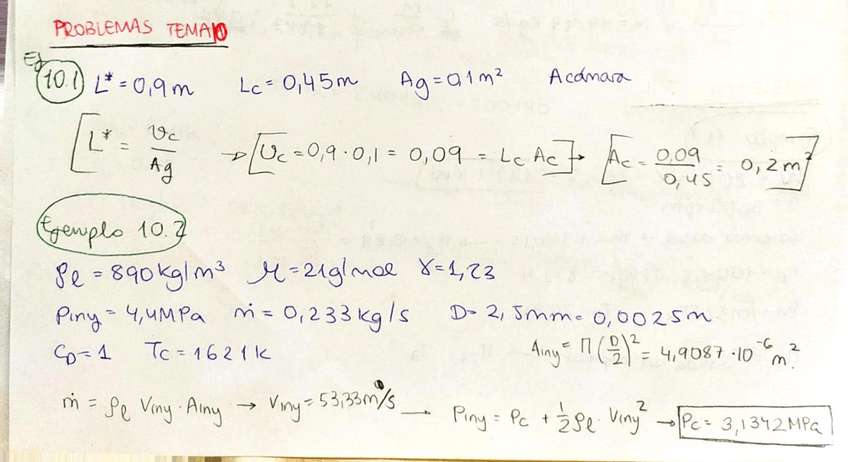 PROBLEMAS TEMA 10
Ej 10.1 L* = 0,9 m Lc = 0,45 m Ag = 0,1 m² Acámara
[L* = Vc/Ag → [Vc = 0,9 · 0,1 = 0,09 = Lc Ac] → [Ac = 0,09/0,45 = 0,2 m²]
Ejemplo 10.2
ρl = 890 kg/m³ M = 21 g/mol γ = 1,23
Piny = 4,4 MPa ṁ = 0,233 kg/s D = 2,5 mm = 0,0025 m
CD = 1 Tc = 1621 K Ainy = Π (D/2)² = 4,9087 · 10⁻⁶ m²
ṁ = ρl Viny · Ainy → Viny = 53,33 m/s → Piny = Pc + 1/2 ρl · Viny² → Pc = 3,1342 MPa